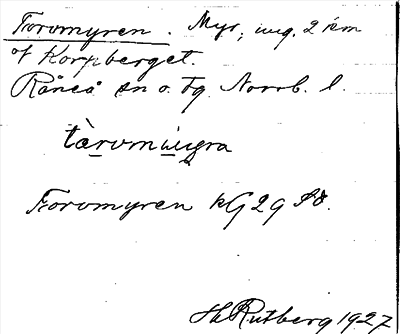 Torvmyren. Myr, ung. 2 km
af Korpberget.
Råneå sn o. tg Norrb. l.
tàrvmųyra
Torvmyren kG 29 SO.
H Rutberg 1927